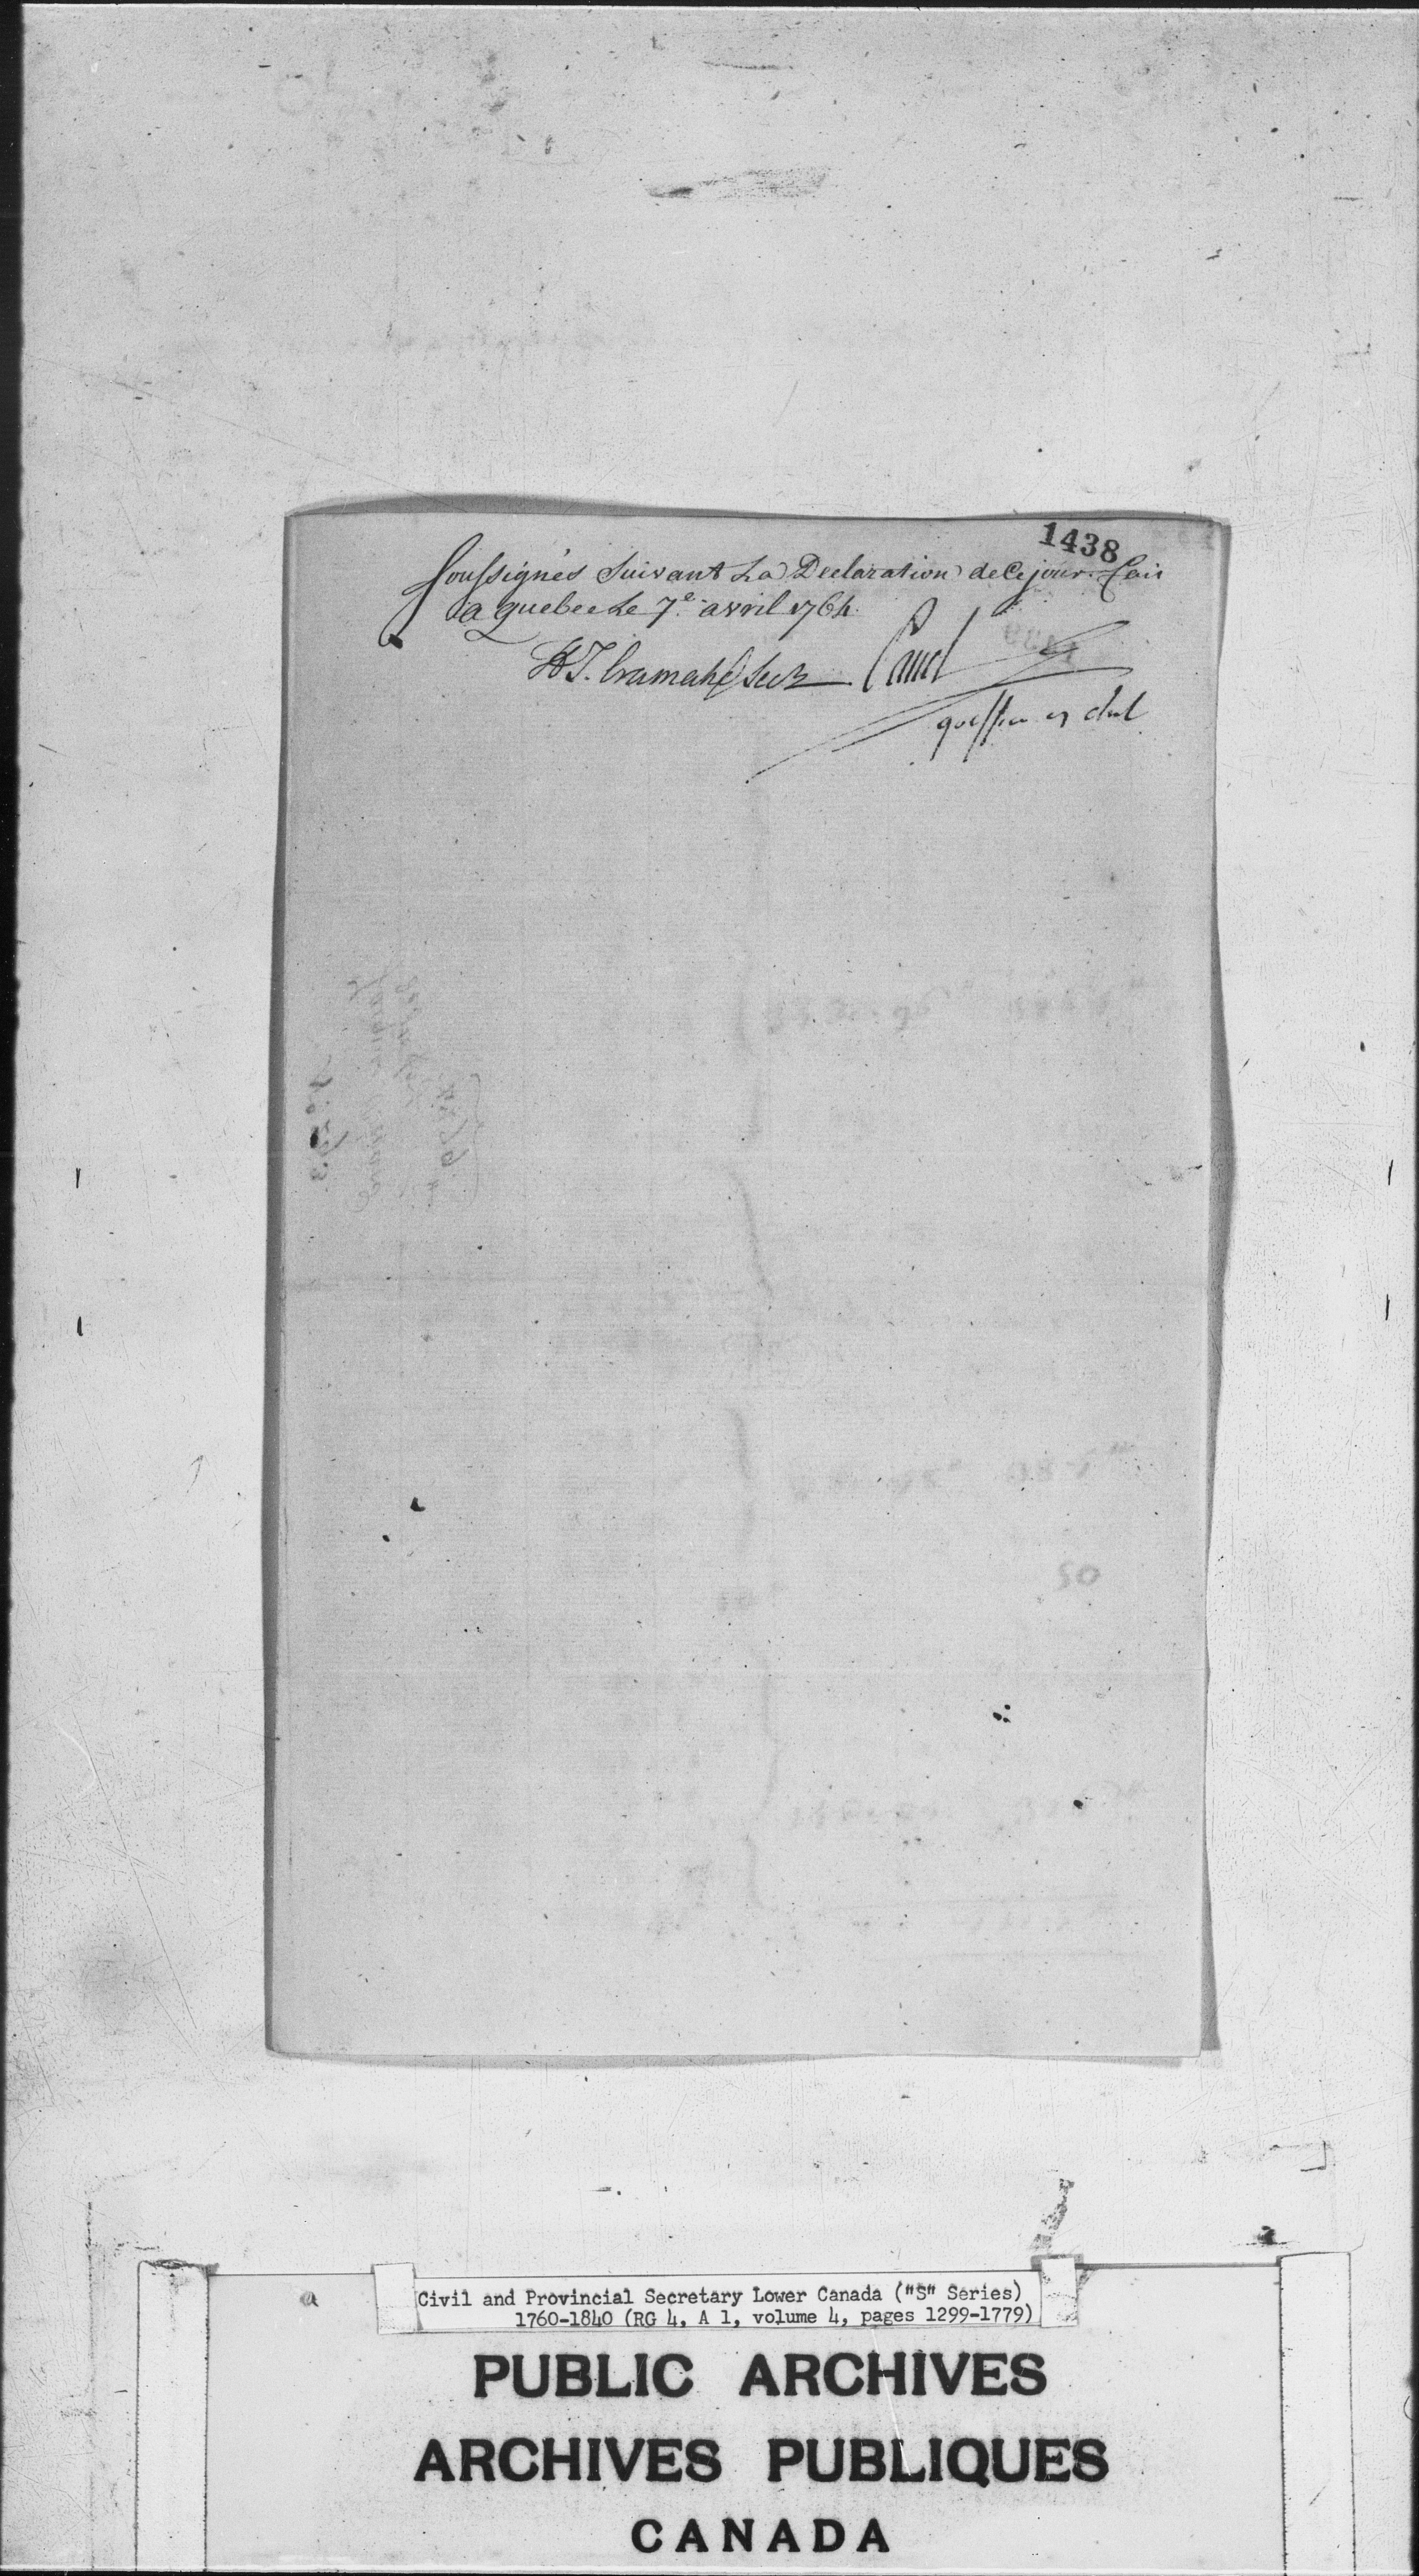 1438
Soussignés Suivant La Declaration de Ce jour. fait
a quebec Le 7e. avril 1764.
H T. Cramahé Secr
Panet
greffier
Civil and Provincial Secretary Lower Canada ("S" Series)
1760-1840 (RG 4, A 1, volume 4, pages 1299-1779)
PUBLIC ARCHIVES
ARCHIVES PUBLIQUES
CANADA